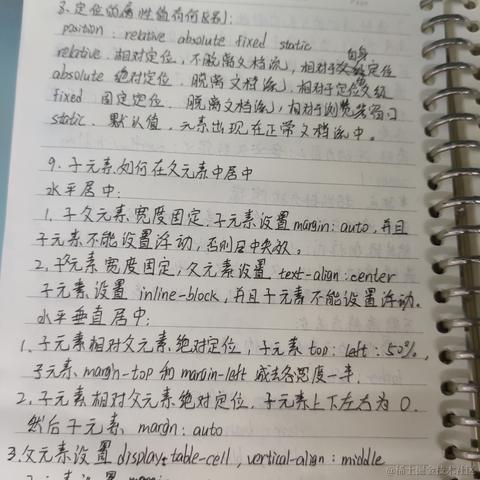 8.定位的属性值有何区别:
position : relative absolute fixed static
relative. 相对定位, 不脱离文档流, 相对于自身定位
absolute 绝对定位. 脱离文档流, 相对于定位父级
fixed 固定定位. 脱离文档流, 相对于浏览器窗口
static. 默认值. 元素出现在正常文档流中。
9. 子元素如何在父元素中居中
水平居中:
1. 子父元素宽度固定. 子元素设置 margin: auto, 并且
子元素不能设置浮动, 否则居中失效。
2. 子父元素宽度固定, 父元素设置 text-align:center
子元素设置 inline-block, 并且子元素不能设置浮动。
水平垂直居中:
1. 子元素相对父元素绝对定位, 子元素 top: left: 50%,
子元素 margin-top 和 margin-left 减去各宽度一半.
2. 子元素相对父元素绝对定位. 子元素上下左右为 0.
然后子元素 margin: auto
3.父元素设置 display: table-cell, vertical-align: middle
@稀土掘金技术社区